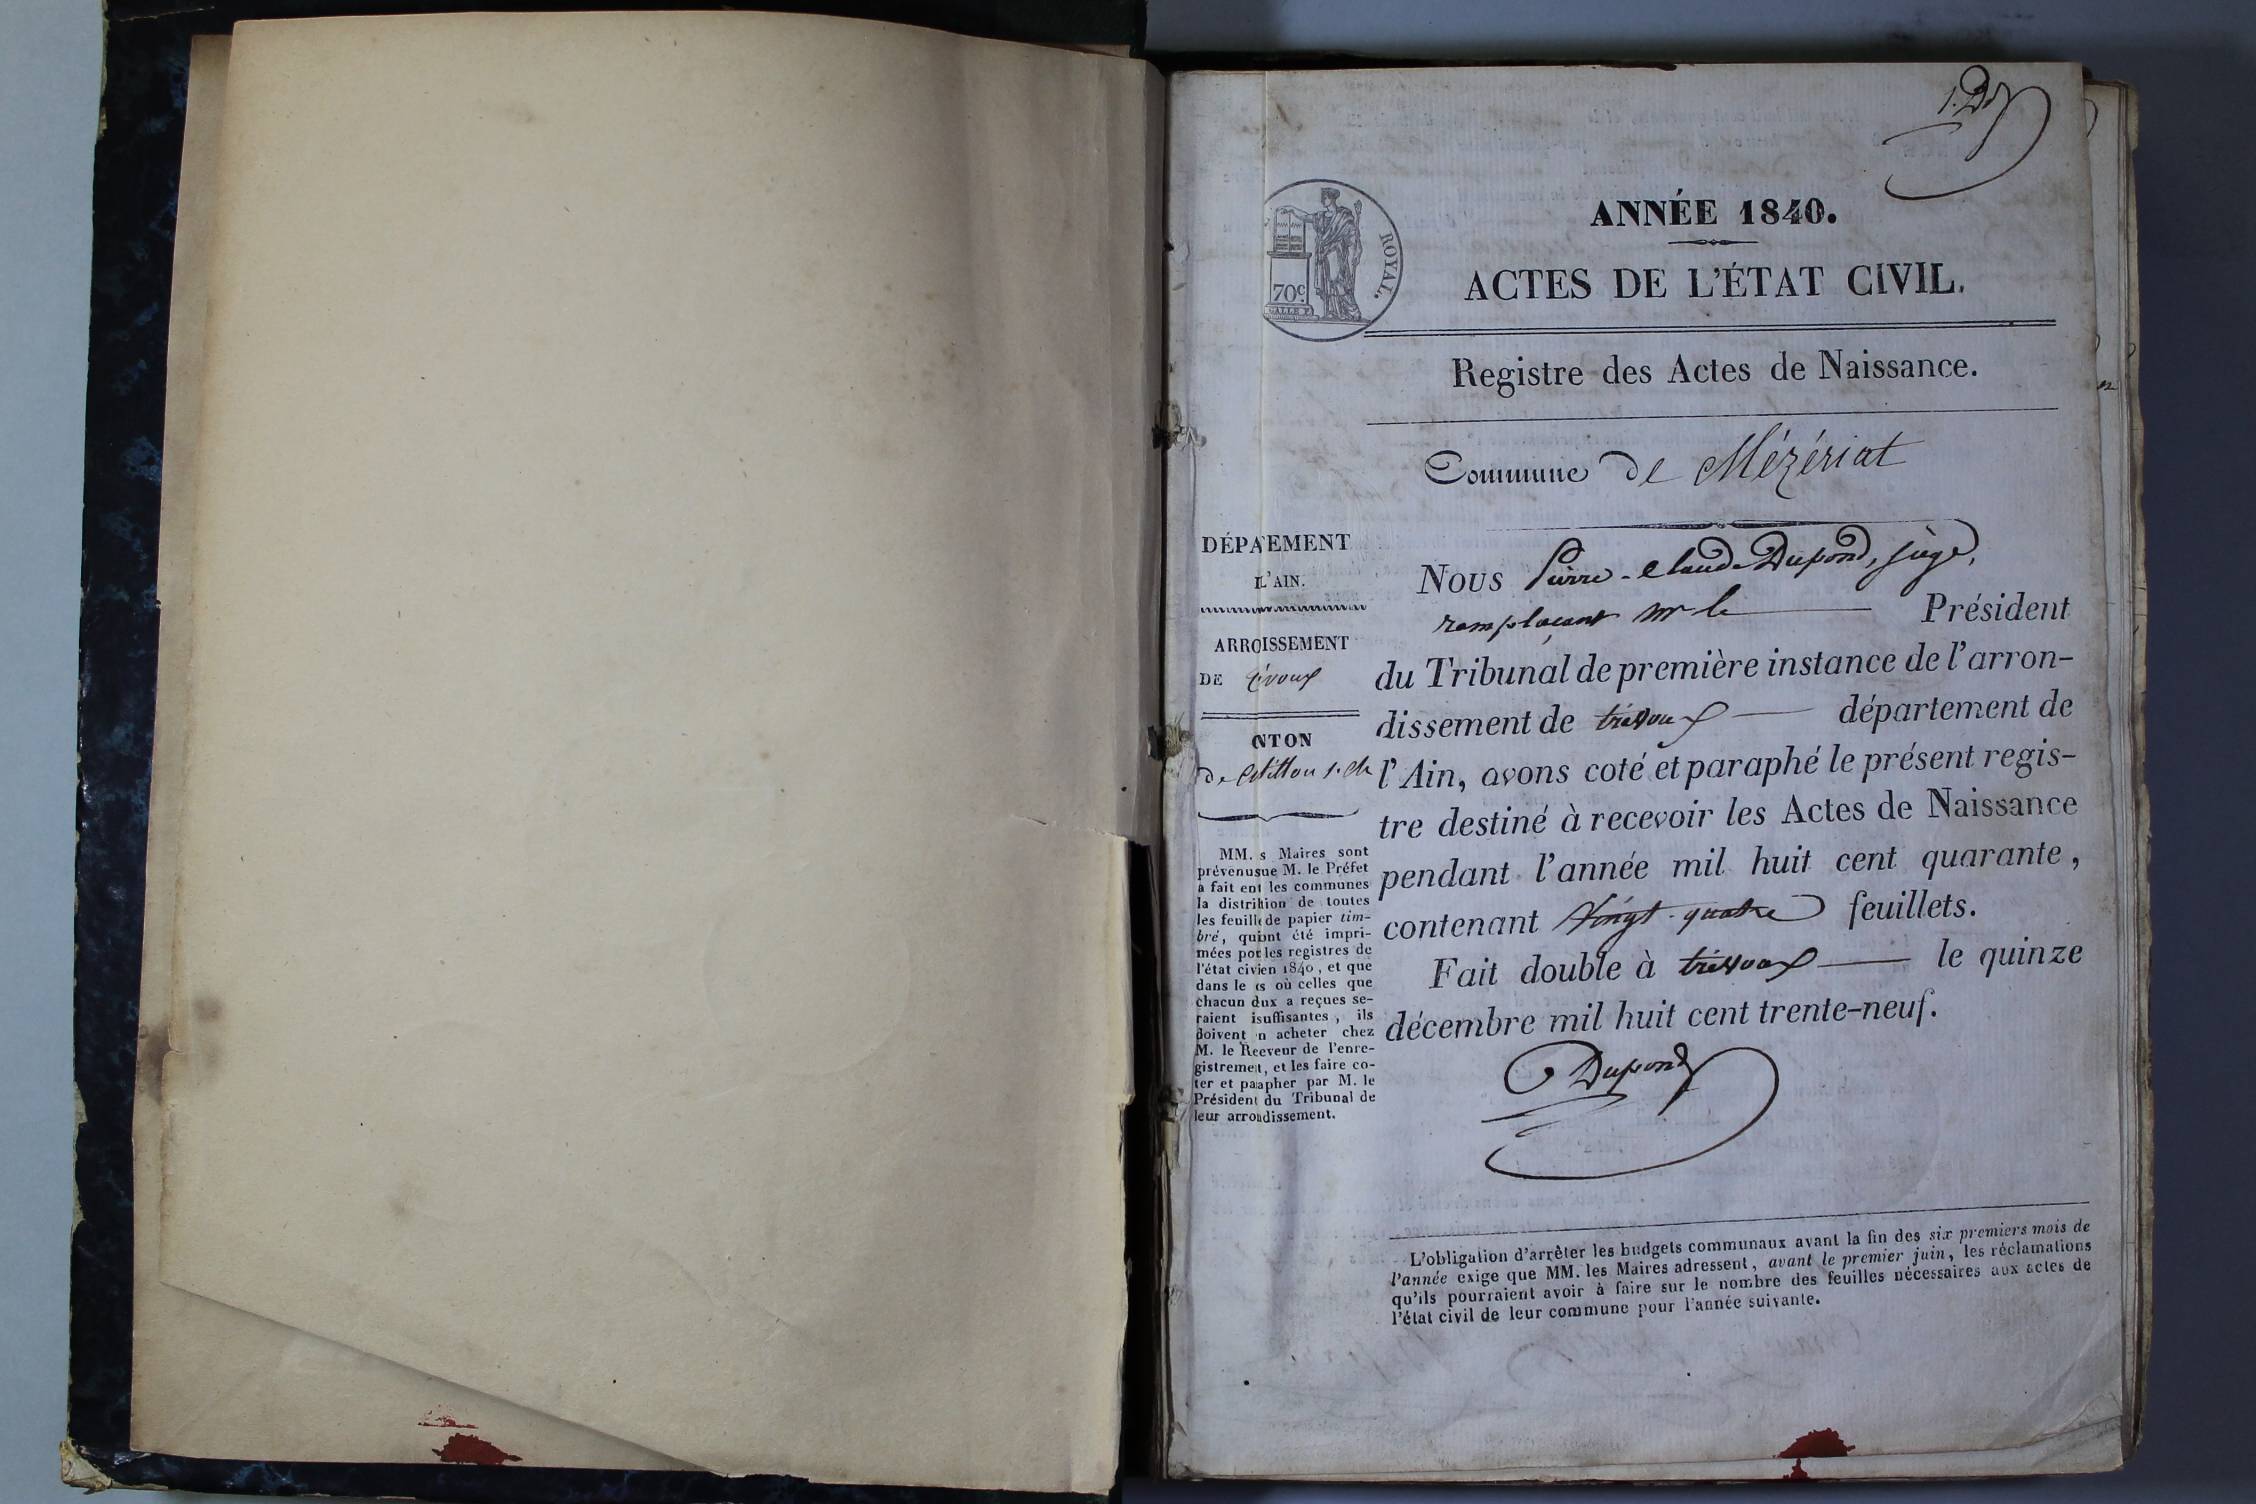 1. D
ANNÉE 1840.
ACTES DE L'ÉTAT CIVIL.
ROYAL.
70c.
Registre des Actes de Naissance.
Commune de Mézériat
DÉPAEMENT
L'AIN.
ARROISSEMENT
DE évoux
NTON
de Chtillon s. Ch
MM. s Maires sont
prévenusue M. le Préfet
a fait ent les communes
la distriition de toutes
les feuillede papier tim-
bré, quiont été impri-
mées poules registres de
l'état civien 1840, et que
dans le cs où celles que
chacun dux a reçues se-
raient isuffisantes, ils
doivent n acheter chez
M. le Receveur de l'enre-
gistremet, et les faire co-
ter et paapher par M. le
Président du Tribunal de
leur arrondissement.
Nous Pierre-Claude Dupond, juge,
remplaçant Mr le Président
du Tribunal de première instance de l'arron-
dissement de trévoux département de
l'Ain, avons coté et paraphé le présent regis-
tre destiné à recevoir les Actes de Naissance
pendant l'année mil huit cent quarante,
contenant Vingt-quatre feuillets.
Fait double à trévoux le quinze
décembre mil huit cent trente-neuf.
Dupond
L'obligation d'arrêter les budgets communaux avant la fin des six premiers mois de
l'année exige que MM. les Maires adressent, avant le premier juin, les réclamations
qu'ils pourraient avoir à faire sur le nombre des feuilles nécessaires aux actes de
l'état civil de leur commune pour l'année suivante.